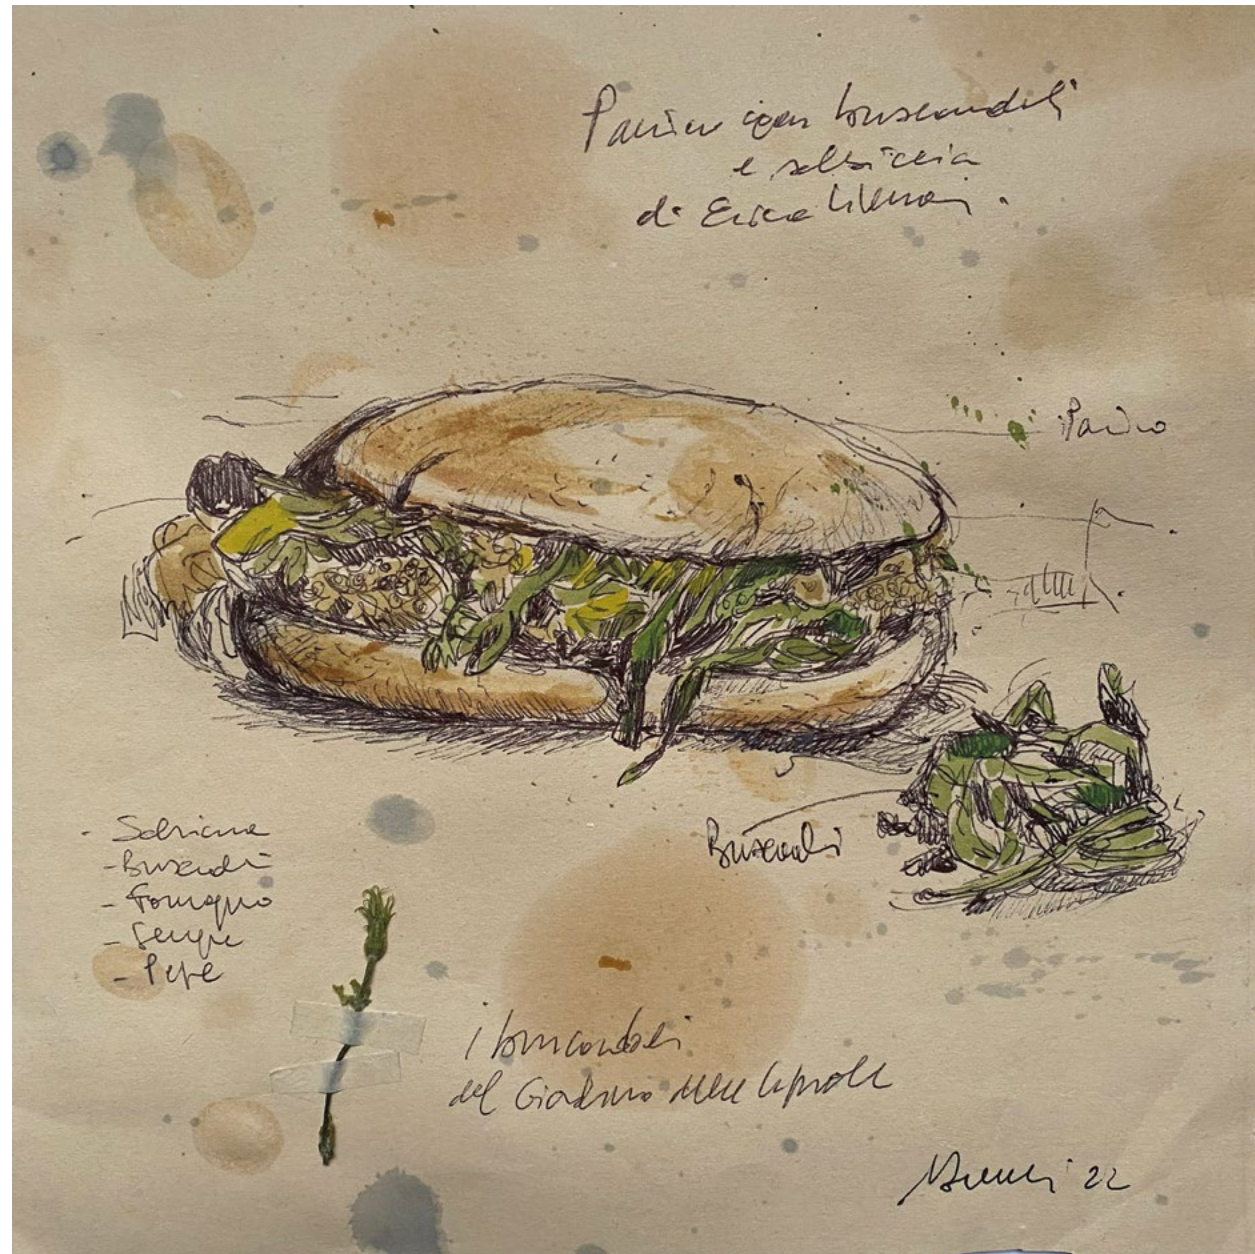 Panino con bruscandoli
e salsiccia
di Erica
Panino
Bruscandoli
- Salsiccia
- Bruscandoli
- Formaggio
- Senape
- Pepe
i bruscandoli
del Giardino delle
22